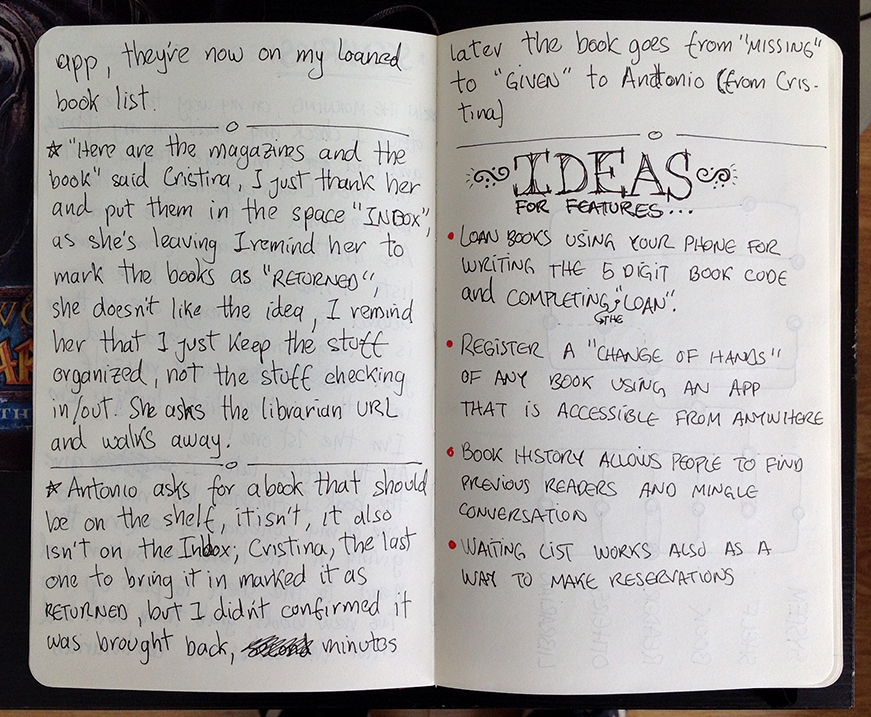 app, they're now on my loaned
book list.
☆ "Here are the magazines and the
book" said Cristina, I just thank her
and put them in the space "INBOX",
as she's leaving I remind her to
mark the books as "RETURNED",
she doesn't like the idea, I remind
her that I just keep the stuff
organized, not the stuff checking
in/out. She asks the librarian URL
and walks away.
☆ Antonio asks for a book that should
be on the shelf, it isn't, it also
isn't on the Inbox; Cristina, the last
one to bring it in marked it as
RETURNED, but I didn't confirmed it
was brought back, minutos
later the book goes from "MISSING"
to "GIVEN" to Antonio (from Cris-
tina)
IDEAS
FOR FEATURES...
• LOAN BOOKS USING YOUR PHONE FOR
WRITING THE 5 DIGIT BOOK CODE
and COMPLETING "LOAN".
THE
• REGISTER A "CHANGE OF HANDS"
OF ANY BOOK USING AN APP
THAT IS ACCESSIBLE FROM ANYWHERE
• BOOK HISTORY ALLOWS PEOPLE TO FIND
PREVIOUS READERS AND MINGLE
CONVERSATION
• WAITING LIST WORKS ALSO AS A
WAY TO MAKE RESERVATIONS